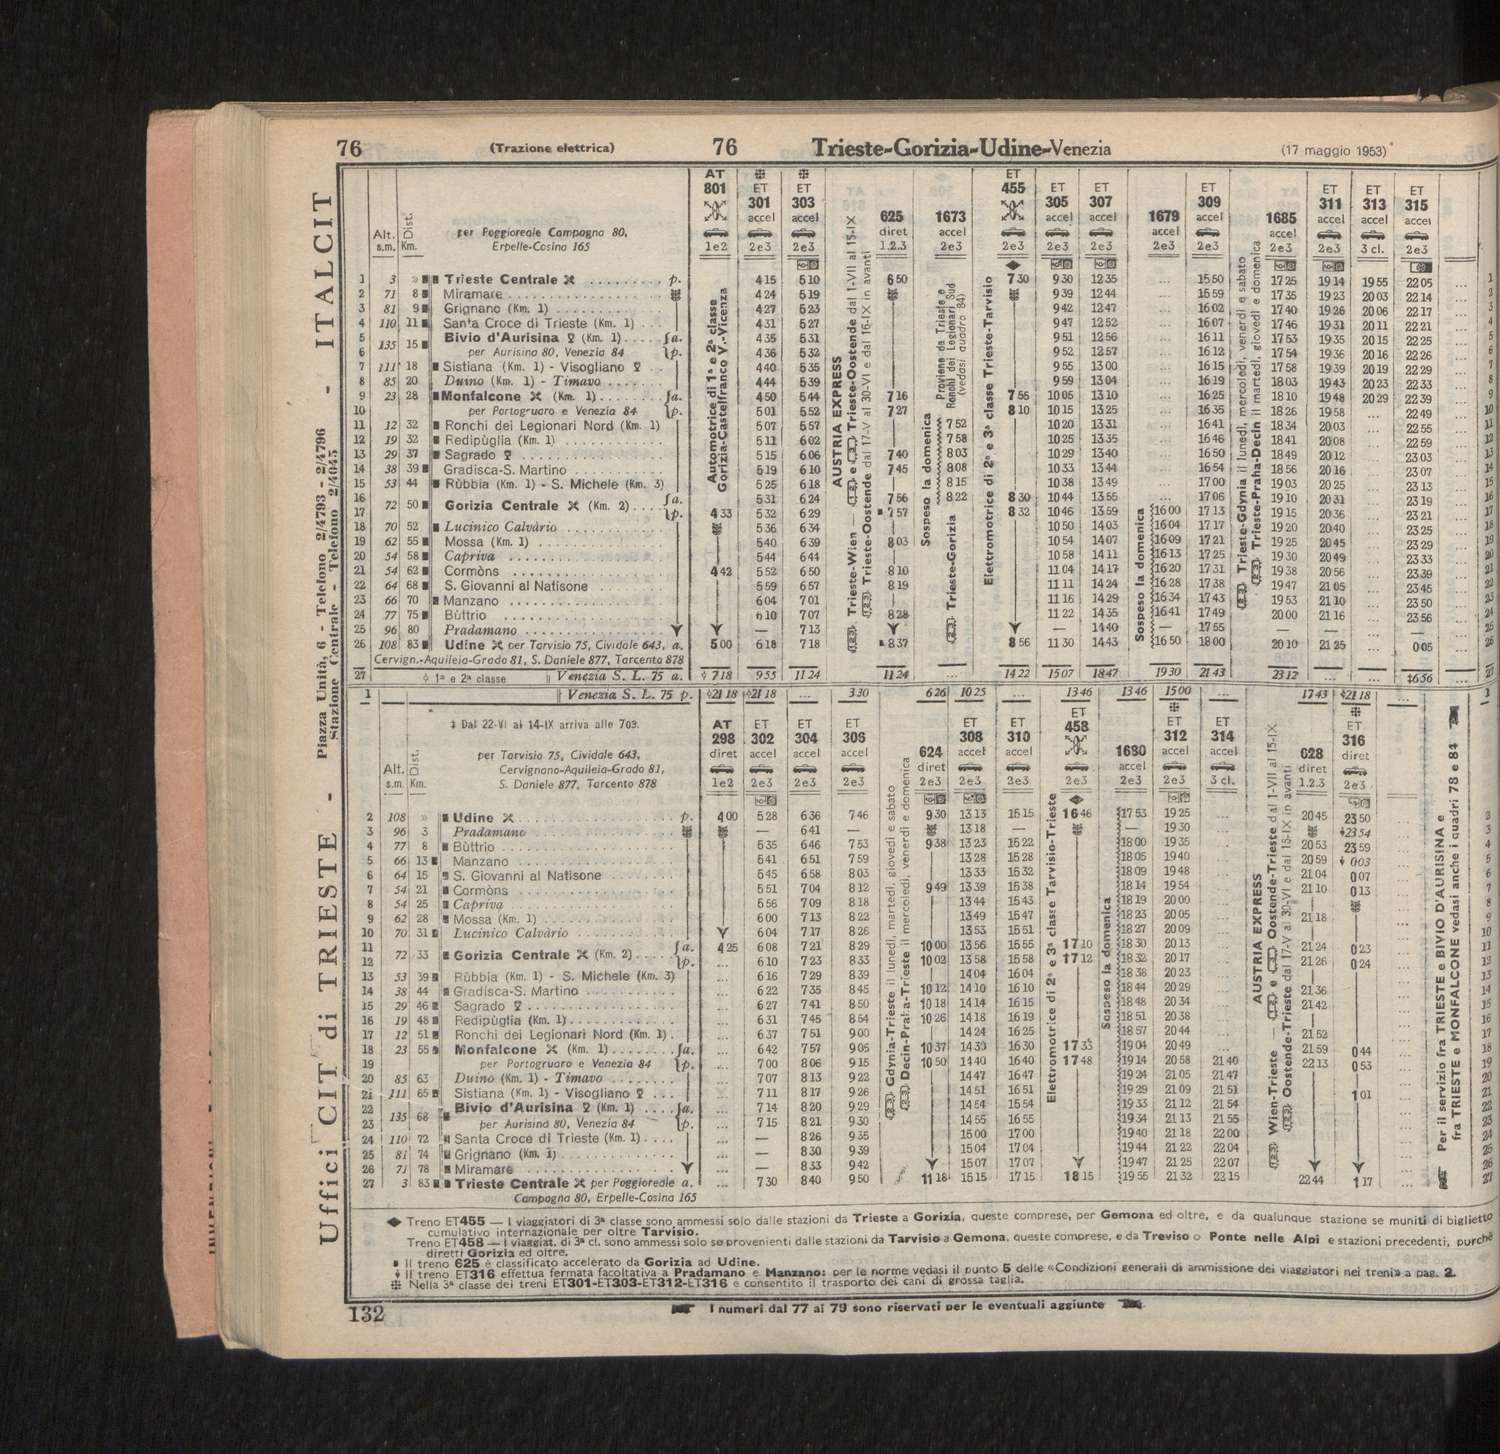 76 (Trazione elettrica) 76 Trieste-Gorizia-Udine-Venezia (17 maggio 1953)
Uffici CIT di TRIESTE - Piazza Unità, 6 - Telefono 2/4793 - 2/4796 - ITALCIT
Stazione Centrale - Telefono 2/4045
AT 801 ET 301 ET 303 625 1673 ET 455 ET 305 ET 307 1679 ET 309 1685 ET 311 ET 313 ET 315
accel accel diret accel accel accel accel accel accel accel accel accel
Alt. s.m. Dist. Km. per Poggioreale Campagna 80, Erpelle-Cosina 165
1e2 2e3 2e3 1.2.3 2e3 2e3 2e3 2e3 2e3 2e3 2e3 2e3 3 cl. 2e3
Automotrice di 1ª e 2ª classe Gorizia-Castelfranco V.-Vicenza
AUSTRIA EXPRESS
Trieste-Wien — e Trieste-Oostende dal 1-VII al 15-IX
Trieste-Oostende dal 17-V al 30-VI e dal 16-IX in avanti
Sospeso la domenica
Proviene da Trieste e Ronchi dei Legionari Sud (vedasi quadro 84)
Trieste-Gorizia
Elettromotrice di 2ª e 3ª classe Trieste-Tarvisio
Sospeso la domenica
Trieste-Gdynia il lunedì, mercoledì, venerdì e sabato
Trieste-Praha-Decin il martedì, giovedì e domenica
1 3 » Trieste Centrale p. 4 15 5 10 6 50 7 30 9 30 12 35 ... 15 50 17 25 19 14 19 55 22 05 ... 1
2 71 8 Miramare 4 24 5 19 9 39 12 44 ... 15 59 17 35 19 23 20 03 22 14 ... 2
3 81 9 Grignano (Km. 1) 4 27 5 23 9 42 12 47 ... 16 02 17 40 19 26 20 06 22 17 ... 3
4 110 11 Santa Croce di Trieste (Km. 1) 4 31 5 27 9 47 12 52 ... 16 07 17 46 19 31 20 11 22 21 ... 4
5 135 15 Bivio d'Aurisina (Km. 1) a. 4 35 5 31 9 51 12 56 ... 16 11 17 53 19 35 20 15 22 25 ... 5
6 per Aurisina 80, Venezia 84 p. 4 36 5 32 9 52 12 57 ... 16 12 17 54 19 36 20 16 22 26 ... 6
7 111 18 Sistiana (Km. 1) - Visogliano 4 40 5 35 9 55 13 00 ... 16 15 17 58 19 39 20 19 22 29 ... 7
8 85 20 Duino (Km. 1) - Timavo 4 44 5 39 9 59 13 04 ... 16 19 18 03 19 43 20 23 22 33 ... 8
9 23 28 Monfalcone (Km. 1) a. 4 50 5 44 7 16 7 56 10 05 13 10 ... 16 25 18 10 19 48 20 29 22 39 ... 9
10 per Portogruaro e Venezia 84 p. 5 01 5 52 7 27 8 10 10 15 13 25 ... 16 35 18 26 19 58 ... 22 49 ... 10
11 12 32 Ronchi dei Legionari Nord (Km. 1) 5 07 5 57 7 52 10 20 13 31 ... 16 41 18 34 20 03 ... 22 55 ... 11
12 19 32 Redipùglia (Km. 1) 5 11 6 02 7 58 10 25 13 35 ... 16 46 18 41 20 08 ... 22 59 ... 12
13 29 37 Sagrado 5 15 6 06 7 40 8 03 10 29 13 40 ... 16 50 18 49 20 12 ... 23 03 ... 13
14 38 39 Gradisca-S. Martino 5 19 6 10 7 45 8 08 10 33 13 44 ... 16 54 18 56 20 16 ... 23 07 ... 14
15 53 44 Rùbbia (Km. 1) - S. Michele (Km. 3) 5 25 6 18 — 8 15 10 38 13 49 ... 17 00 19 03 20 25 ... 23 13 ... 15
16 72 50 Gorizia Centrale (Km. 2) a. 5 31 6 24 7 56 8 22 8 30 10 44 13 55 ... 17 06 19 10 20 31 ... 23 19 ... 16
17 p. 4 33 5 32 6 29 7 57 8 32 10 46 13 59 16 00 17 13 19 15 20 36 ... 23 21 ... 17
18 70 52 Lucinico Calvàrio 5 36 6 34 — 10 50 14 03 16 04 17 17 19 20 20 40 ... 23 25 ... 18
19 62 55 Mossa (Km. 1) 5 40 6 39 8 03 10 54 14 07 16 09 17 21 19 25 20 45 ... 23 29 ... 19
20 54 58 Capriva 5 44 6 44 — 10 58 14 11 16 13 17 25 19 30 20 49 ... 23 33 ... 20
21 54 62 Cormòns 4 42 5 52 6 50 8 10 11 04 14 17 16 20 17 31 19 38 20 56 ... 23 39 ... 21
22 64 68 S. Giovanni al Natisone 5 59 6 57 8 19 11 11 14 24 16 28 17 38 19 47 21 05 ... 23 45 ... 22
23 66 70 Manzano 6 04 7 01 — 11 16 14 29 16 34 17 43 19 53 21 10 ... 23 50 ... 23
24 77 75 Bùttrio 6 10 7 07 8 28 11 22 14 35 16 41 17 49 20 00 21 16 ... 23 56 ... 24
25 96 80 Pradamano — 7 13 — 14 40 — 17 55 — — ... — ... 25
26 108 83 Udine per Tarvisio 75, Cividale 643, a. 5 00 6 18 7 18 8 37 8 56 11 30 14 43 16 50 18 00 20 10 21 25 ... 0 05 ... 26
Cervign.-Aquileia-Grado 81, S. Daniele 877, Tarcento 878
27 1ª e 2ª classe Venezia S. L. 75 a. 7 18 9 55 11 24 11 24 ... 14 22 15 07 18 47 19 30 21 43 23 12 ... ... ‡6 56 ... 27
1 Venezia S. L. 75 p. 21 18 21 18 ... 3 30 6 26 10 25 ... 13 46 13 46 15 00 ... 17 43 21 18 ... 1
‡ Dal 22-VI al 14-IX arriva alle 703.
AT 298 ET 302 ET 304 ET 306 624 ET 308 ET 310 ET 458 1680 ET 312 ET 314 628 ET 316
diret accel accel accel diret accel accel accel accel accel diret diret
Alt. s.m. Dist. Km. per Tarvisio 75, Cividale 643, Cervignano-Aquileia-Grado 81, S. Daniele 877, Tarcento 878
1e2 2e3 2e3 2e3 2e3 2e3 2e3 2e3 2e3 2e3 3 cl. 1.2.3 2e3
Gdynia-Trieste il lunedì, martedì, giovedì e sabato
Decin-Praha-Trieste il mercoledì, venerdì e domenica
Elettromotrice di 2ª e 3ª classe Tarvisio-Trieste
Sospeso la domenica
AUSTRIA EXPRESS
Wien-Trieste — e Oostende-Trieste dal 1-VII al 15-IX
Oostende-Trieste dal 17-V al 30-VI e dal 16-IX in avanti
Per il servizio fra TRIESTE e BIVIO D'AURISINA e
fra TRIESTE e MONFALCONE vedasi anche i quadri 78 e 84
2 108 » Udine p. 4 00 5 28 6 36 7 46 9 30 13 13 15 15 16 46 17 53 19 25 ... 20 45 23 50 ... 2
3 96 3 Pradamano — 6 41 — 13 18 — — 19 30 ... 23 54 ... 3
4 77 8 Bùttrio 5 35 6 46 7 53 9 38 13 23 15 22 18 00 19 35 ... 20 53 23 59 ... 4
5 66 13 Manzano 5 41 6 51 7 59 13 28 15 28 18 05 19 40 ... 20 59 0 03 ... 5
6 64 15 S. Giovanni al Natisone 5 45 6 58 8 03 13 33 15 32 18 09 19 48 ... 21 04 0 07 ... 6
7 54 21 Cormòns 5 51 7 04 8 12 9 49 13 39 15 38 18 14 19 54 ... 21 10 0 13 ... 7
8 54 25 Capriva 5 56 7 09 8 18 13 44 15 43 18 19 20 00 ... 8
9 62 28 Mossa (Km. 1) 6 00 7 13 8 22 13 49 15 47 18 23 20 05 ... 21 18 ... 9
10 70 31 Lucinico Calvàrio 6 04 7 17 8 26 13 53 15 51 18 27 20 09 ... 10
11 72 33 Gorizia Centrale (Km. 2) a. 4 25 6 08 7 21 8 29 10 00 13 56 15 55 17 10 18 30 20 13 ... 21 24 0 23 ... 11
12 p. ... 6 10 7 23 8 33 10 02 13 58 15 58 17 12 18 32 20 17 ... 21 26 0 24 ... 12
13 53 39 Rùbbia (Km. 1) - S. Michele (Km. 3) ... 6 16 7 29 8 39 14 04 16 04 18 38 20 23 ... 13
14 38 44 Gradisca-S. Martino ... 6 22 7 35 8 45 10 12 14 10 16 10 18 44 20 29 ... 21 36 ... 14
15 29 46 Sagrado ... 6 27 7 41 8 50 10 18 14 14 16 15 18 48 20 34 ... 21 42 ... 15
16 19 48 Redipùglia (Km. 1) ... 6 31 7 45 8 54 10 26 14 18 16 19 18 51 20 38 ... 16
17 12 51 Ronchi dei Legionari Nord (Km. 1) ... 6 37 7 51 9 00 14 24 16 25 18 57 20 44 ... 21 52 ... 17
18 23 55 Monfalcone (Km. 1) a. ... 6 42 7 57 9 05 10 37 14 30 16 30 17 33 19 04 20 49 ... 21 59 0 44 ... 18
19 per Portogruaro e Venezia 84 p. ... 7 00 8 06 9 15 10 50 14 40 16 40 17 48 19 14 20 58 21 40 22 13 0 53 ... 19
20 85 63 Duino (Km. 1) - Timavo ... 7 07 8 13 9 22 14 47 16 47 19 24 21 05 21 47 ... 20
21 111 65 Sistiana (Km. 1) - Visogliano ... 7 11 8 17 9 26 14 51 16 51 19 29 21 09 21 51 1 01 ... 21
22 135 68 Bivio d'Aurisina (Km. 1) a. ... 7 14 8 20 9 29 14 54 16 54 19 33 21 12 21 54 ... 22
23 per Aurisina 80, Venezia 84 p. ... 7 15 8 21 9 30 14 55 16 55 19 34 21 13 21 55 ... 23
24 110 72 Santa Croce di Trieste (Km. 1) ... — 8 26 9 35 15 00 17 00 19 40 21 18 22 00 ... 24
25 81 74 Grignano (Km. 1) ... — 8 30 9 39 15 04 17 04 19 44 21 22 22 04 ... 25
26 71 78 Miramare ... — 8 33 9 42 15 07 17 07 19 47 21 25 22 07 ... 26
27 3 83 Trieste Centrale per Poggioreale a. ... 7 30 8 40 9 50 11 18 15 15 17 15 18 15 19 55 21 32 22 15 22 44 1 17 ... 27
Campagna 80, Erpelle-Cosina 165
◆ Treno ET455 — I viaggiatori di 3ª classe sono ammessi solo dalle stazioni da Trieste a Gorizia, queste comprese, per Gemona ed oltre, e da qualunque stazione se muniti di biglietto
cumulativo internazionale per oltre Tarvisio.
Treno ET458 — I viaggiat. di 3ª cl. sono ammessi solo se provenienti dalle stazioni da Tarvisio a Gemona, queste comprese, e da Treviso o Ponte nelle Alpi e stazioni precedenti, purchè
diretti Gorizia ed oltre.
■ Il treno 625 è classificato accelerato da Gorizia ad Udine.
Il treno ET316 effettua fermata facoltativa a Pradamano e Manzano: per le norme vedasi il punto 5 delle «Condizioni generali di ammissione dei viaggiatori nei treni» a pag. 2.
Nella 3ª classe dei treni ET301-ET303-ET312-ET316 è consentito il trasporto dei cani di grossa taglia.
132 I numeri dal 77 al 79 sono riservati per le eventuali aggiunte